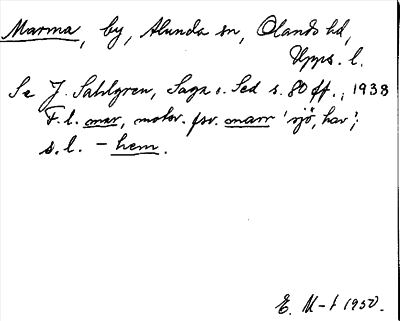 Marma, by, Alunda sn, Olands hd,
Upps. l.
Se J. Sahlgren, Saga o. Sed s. 80 ff., 1938
F. l. mar, motsv. fsv. marr 'sjö, hav';
s. l. - hem.
E. M-t 1950.